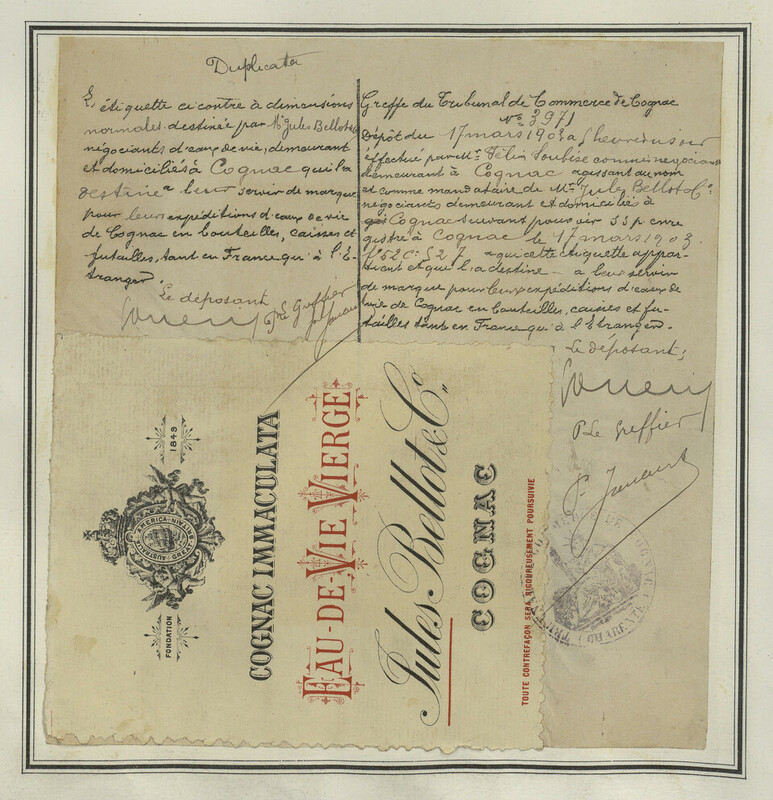 Duplicata
L'étiquette ci contre à dimensions
normales destinée par Mr Jules Bellot & Co
négociants d'eaux de vie demeurant
et domiciliés à Cognac qui la
destinent à leur servir de marque
pour leurs expéditions d'eaux de vie
de Cognac en bouteilles, caisses et
futailles, tant en France qu'à l'É-
tranger.
Le déposant
Pr Le Greffier
Greffe du Tribunal de Commerce de Cognac
No 3971
Dépôt du 17 mars 1903 a heure du soir
effectué par Mr. Félix commis négociant
demeurant à Cognac agissant au nom
et comme mandataire de Mrs Jules Bellot & Co.
négociants demeurant et domiciliés à
Cognac suivant pouvoir ssp enre
gistré à Cognac le 17 mars 1903.
fo 52 Ce 27 a qui cette étiquette appar-
tient et que l'a destine a leur servir
de marque pour leurs expéditions d'eaux de
vie de Cognac en bouteilles, caisses et fu-
tailles tant en France qu'à l'Etranger.
Le déposant,
P Le Greffier
FONDATION 1849
COGNAC IMMACULATA
EAU-DE-VIE VIERGE
Jules Bellot & Co.
COGNAC
TOUTE CONTREFAÇON SERA RIGOUREUSEMENT POURSUIVIE